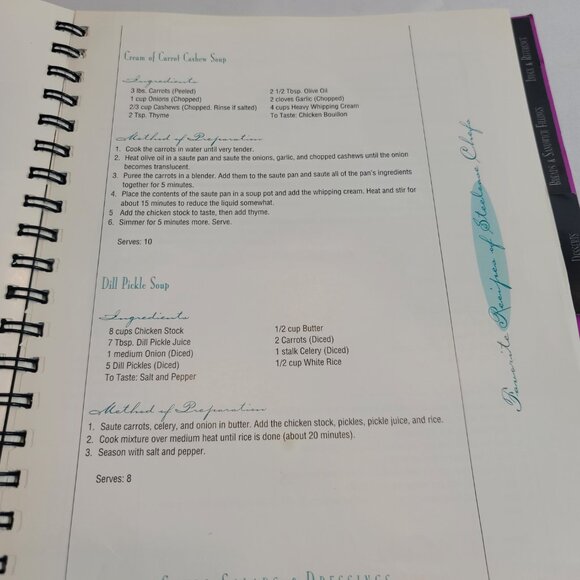 Cream of Carrot Cashew Soup
Ingredients
3 lbs. Carrots (Peeled)
1 cup Onions (Chopped)
2/3 cup Cashews (Chopped. Rinse if salted)
2 Tsp. Thyme
2 1/2 Tbsp. Olive Oil
2 cloves Garlic (Chopped)
4 cups Heavy Whipping Cream
To Taste: Chicken Bouillon
Method of Preparation
1. Cook the carrots in water until very tender.
2. Heat olive oil in a saute pan and saute the onions, garlic, and chopped cashews until the onion
becomes translucent.
3. Puree the carrots in a blender. Add them to the saute pan and saute all of the pan's ingredients
together for 5 minutes.
4. Place the contents of the saute pan in a soup pot and add the whipping cream. Heat and stir for
about 15 minutes to reduce the liquid somewhat.
5 Add the chicken stock to taste, then add thyme.
6. Simmer for 5 minutes more. Serve.
Serves: 10
Dill Pickle Soup
Ingredients
8 cups Chicken Stock
7 Tbsp. Dill Pickle Juice
1 medium Onion (Diced)
5 Dill Pickles (Diced)
To Taste: Salt and Pepper
1/2 cup Butter
2 Carrots (Diced)
1 stalk Celery (Diced)
1/2 cup White Rice
Method of Preparation
1. Saute carrots, celery, and onion in butter. Add the chicken stock, pickles, pickle juice, and rice.
2. Cook mixture over medium heat until rice is done (about 20 minutes).
3. Season with salt and pepper.
Serves: 8
Favorite Recipes of Steelcase Chefs
Breads & Sandwich Fillings